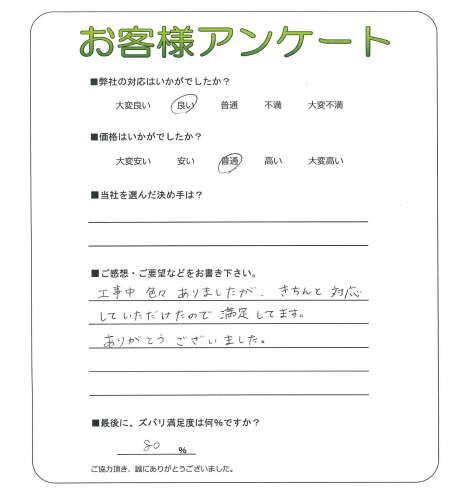 お客様アンケート
■弊社の対応はいかがでしたか？
大変良い 良い 普通 不満 大変不満
■価格はいかがでしたか？
大変安い 安い 普通 高い 大変高い
■当社を選んだ決め手は？
■ご感想・ご要望などをお書き下さい。
工事中 色々 ありましたが、きちんと 対応
していただけたので 満足してます。
ありがとう ございました。
■最後に、ズバリ満足度は何%ですか？
80 %
ご協力頂き、誠にありがとうございました。